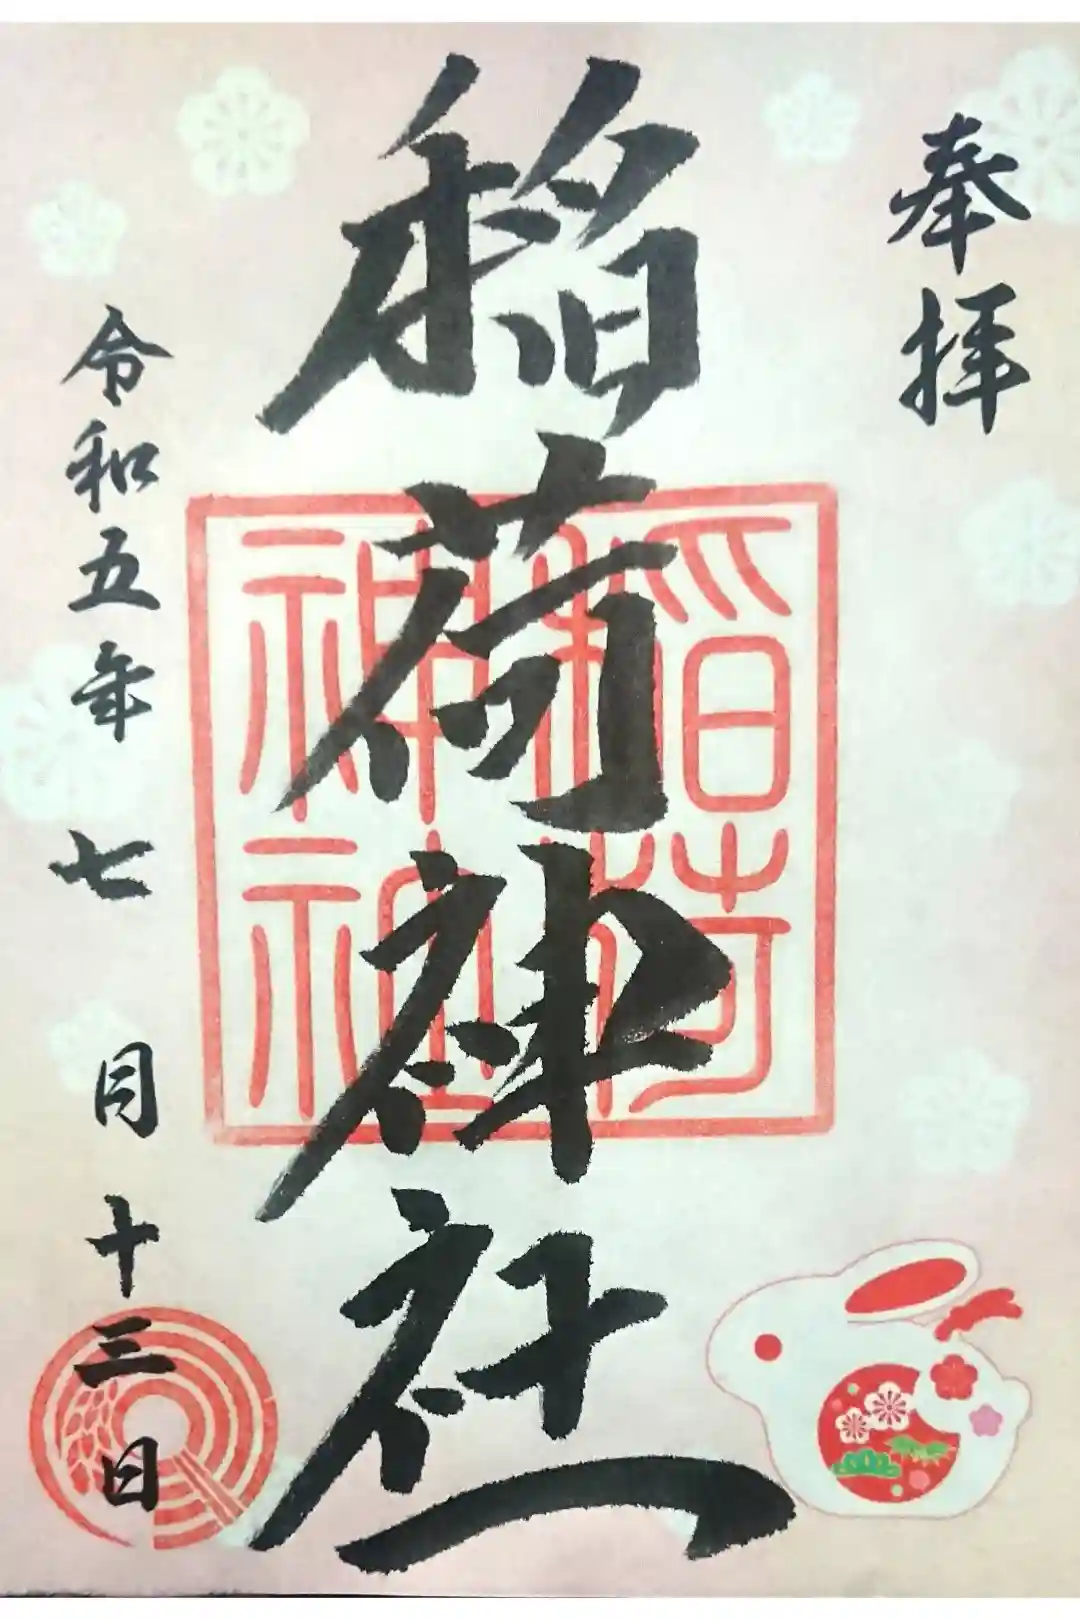 奉拝
稲荷神社
稲荷
神社
令和五年七月十三日